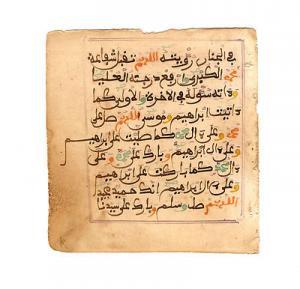 في الجنان رؤيته اللهم تقبل شفاعة
محمد الكبرى وارفع درجته العليا
واته سؤله في الاخرة والاولى كما
اتيت ابراهيم وموسى اللهم صل على
محمد وعلى ال محمد كما صليت على ابراهيم
وعلى ال ابراهيم وبارك على محمد وعلى
ال محمد كما باركت على ابراهيم
وعلى ال ابراهيم انك حميد مجيد
اللهم صل وسلم وبارك على سيدنا